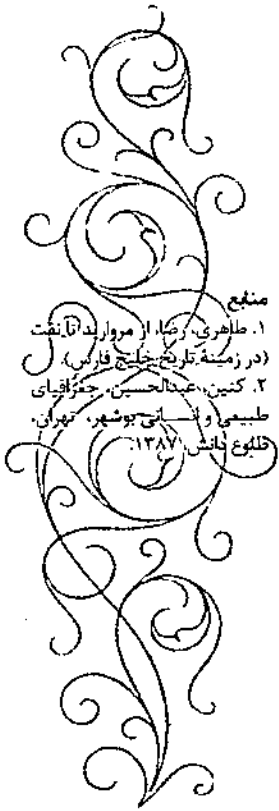 منابع
۱. طاهری، رضا، از مروارید تا نفت
(در زمینهٔ تاریخ خلیج فارس).
۲. کنین، عبدالحسین، جغرافیای
طبیعی و انسانی بوشهر، تهران،
طلوع دانش، ۱۳۸۷.